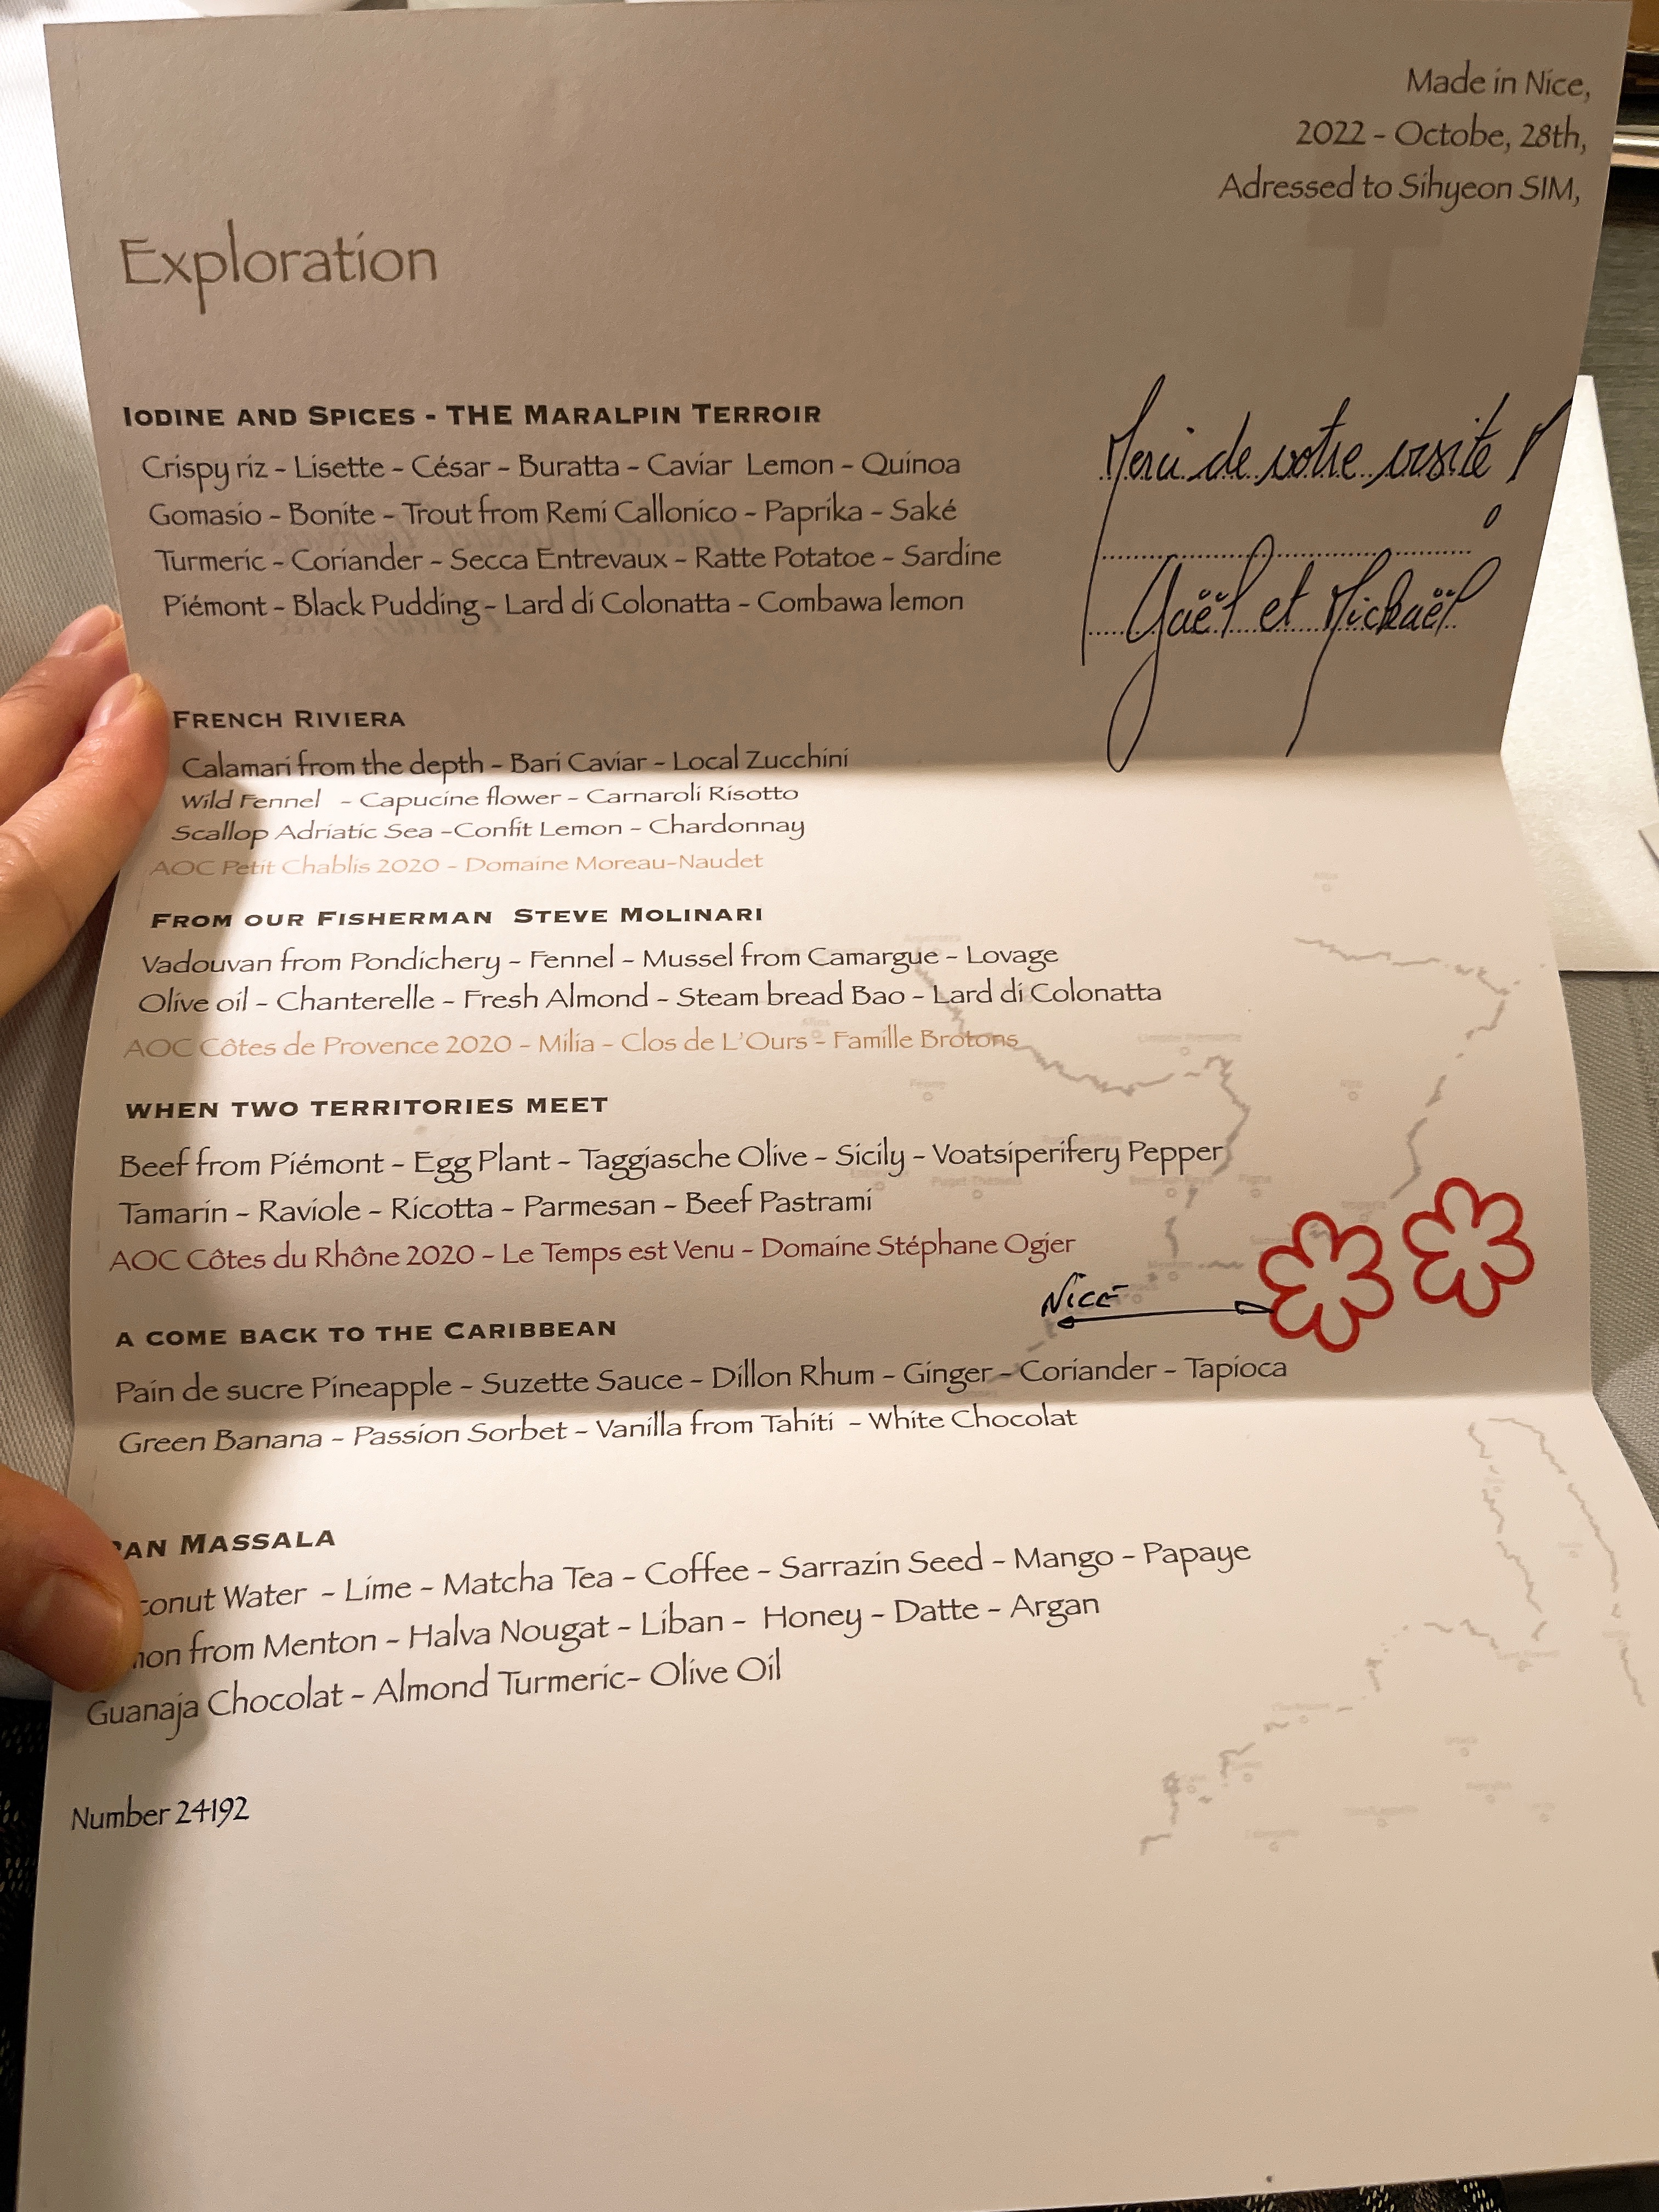 Made in Nice,
2022 - Octobe, 28th,
Adressed to Sihyeon SIM,
Exploration
IODINE AND SPICES - THE MARALPIN TERROIR
Crispy riz - Lisette - César - Buratta - Caviar Lemon - Quinoa
Gomasio - Bonite - Trout from Remi Callonico - Paprika - Saké
Turmeric - Coriander - Secca Entrevaux - Ratte Potatoe - Sardine
Piémont - Black Pudding - Lard di Colonatta - Combawa lemon
Merci de votre visite !
Gaël et Mickaël
FRENCH RIVIERA
Calamari from the depth - Bari Caviar - Local Zucchini
Wild Fennel - Capucine flower - Carnaroli Risotto
Scallop Adriatic Sea -Confit Lemon - Chardonnay
AOC Petit Chablis 2020 - Domaine Moreau-Naudet
FROM OUR FISHERMAN STEVE MOLINARI
Vadouvan from Pondichery - Fennel - Mussel from Camargue - Lovage
Olive oil - Chanterelle - Fresh Almond - Steam bread Bao - Lard di Colonatta
AOC Côtes de Provence 2020 - Milia - Clos de L'Ours - Famille Brotons
WHEN TWO TERRITORIES MEET
Beef from Piémont - Egg Plant - Taggiasche Olive - Sicily - Voatsiperifery Pepper
Tamarin - Raviole - Ricotta - Parmesan - Beef Pastrami
AOC Côtes du Rhône 2020 - Le Temps est Venu - Domaine Stéphane Ogier
NICE
A COME BACK TO THE CARIBBEAN
Pain de sucre Pineapple - Suzette Sauce - Dillon Rhum - Ginger - Coriander - Tapioca
Green Banana - Passion Sorbet - Vanilla from Tahiti - White Chocolat
MASSALA
Water - Lime - Matcha Tea - Coffee - Sarrazin Seed - Mango - Papaye
from Menton - Halva Nougat - Liban - Honey - Datte - Argan
Guanaja Chocolat - Almond Turmeric- Olive Oil
Number 24192